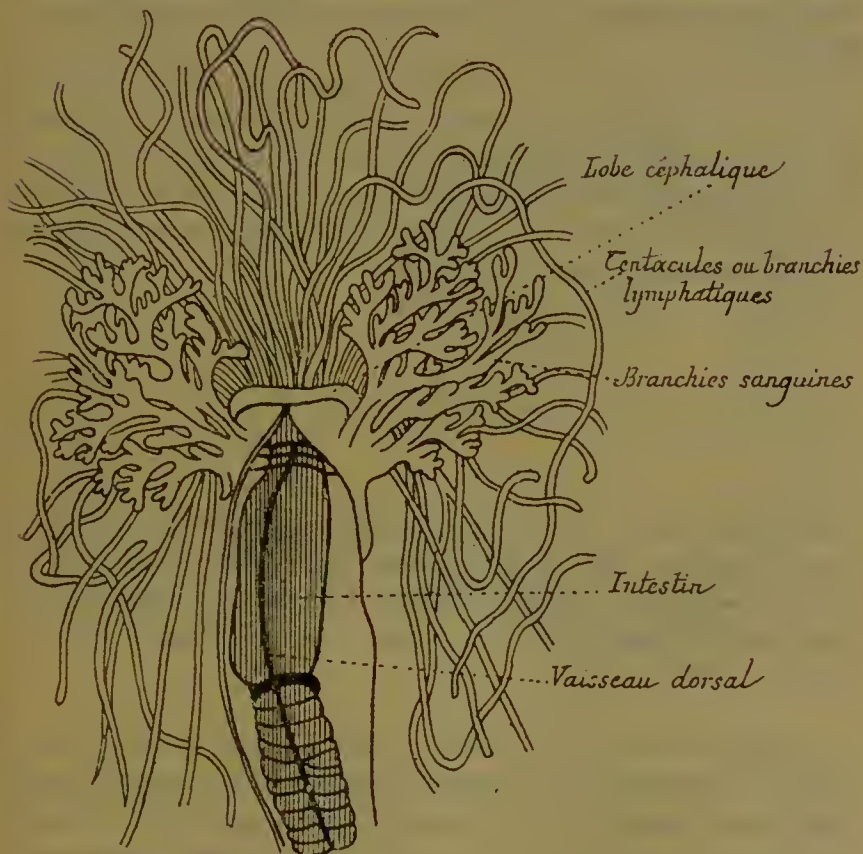 Lobe céphalique
Tentacules ou branchies
lymphatiques
Branchies sanguines
Intestin
Vaisseau dorsal